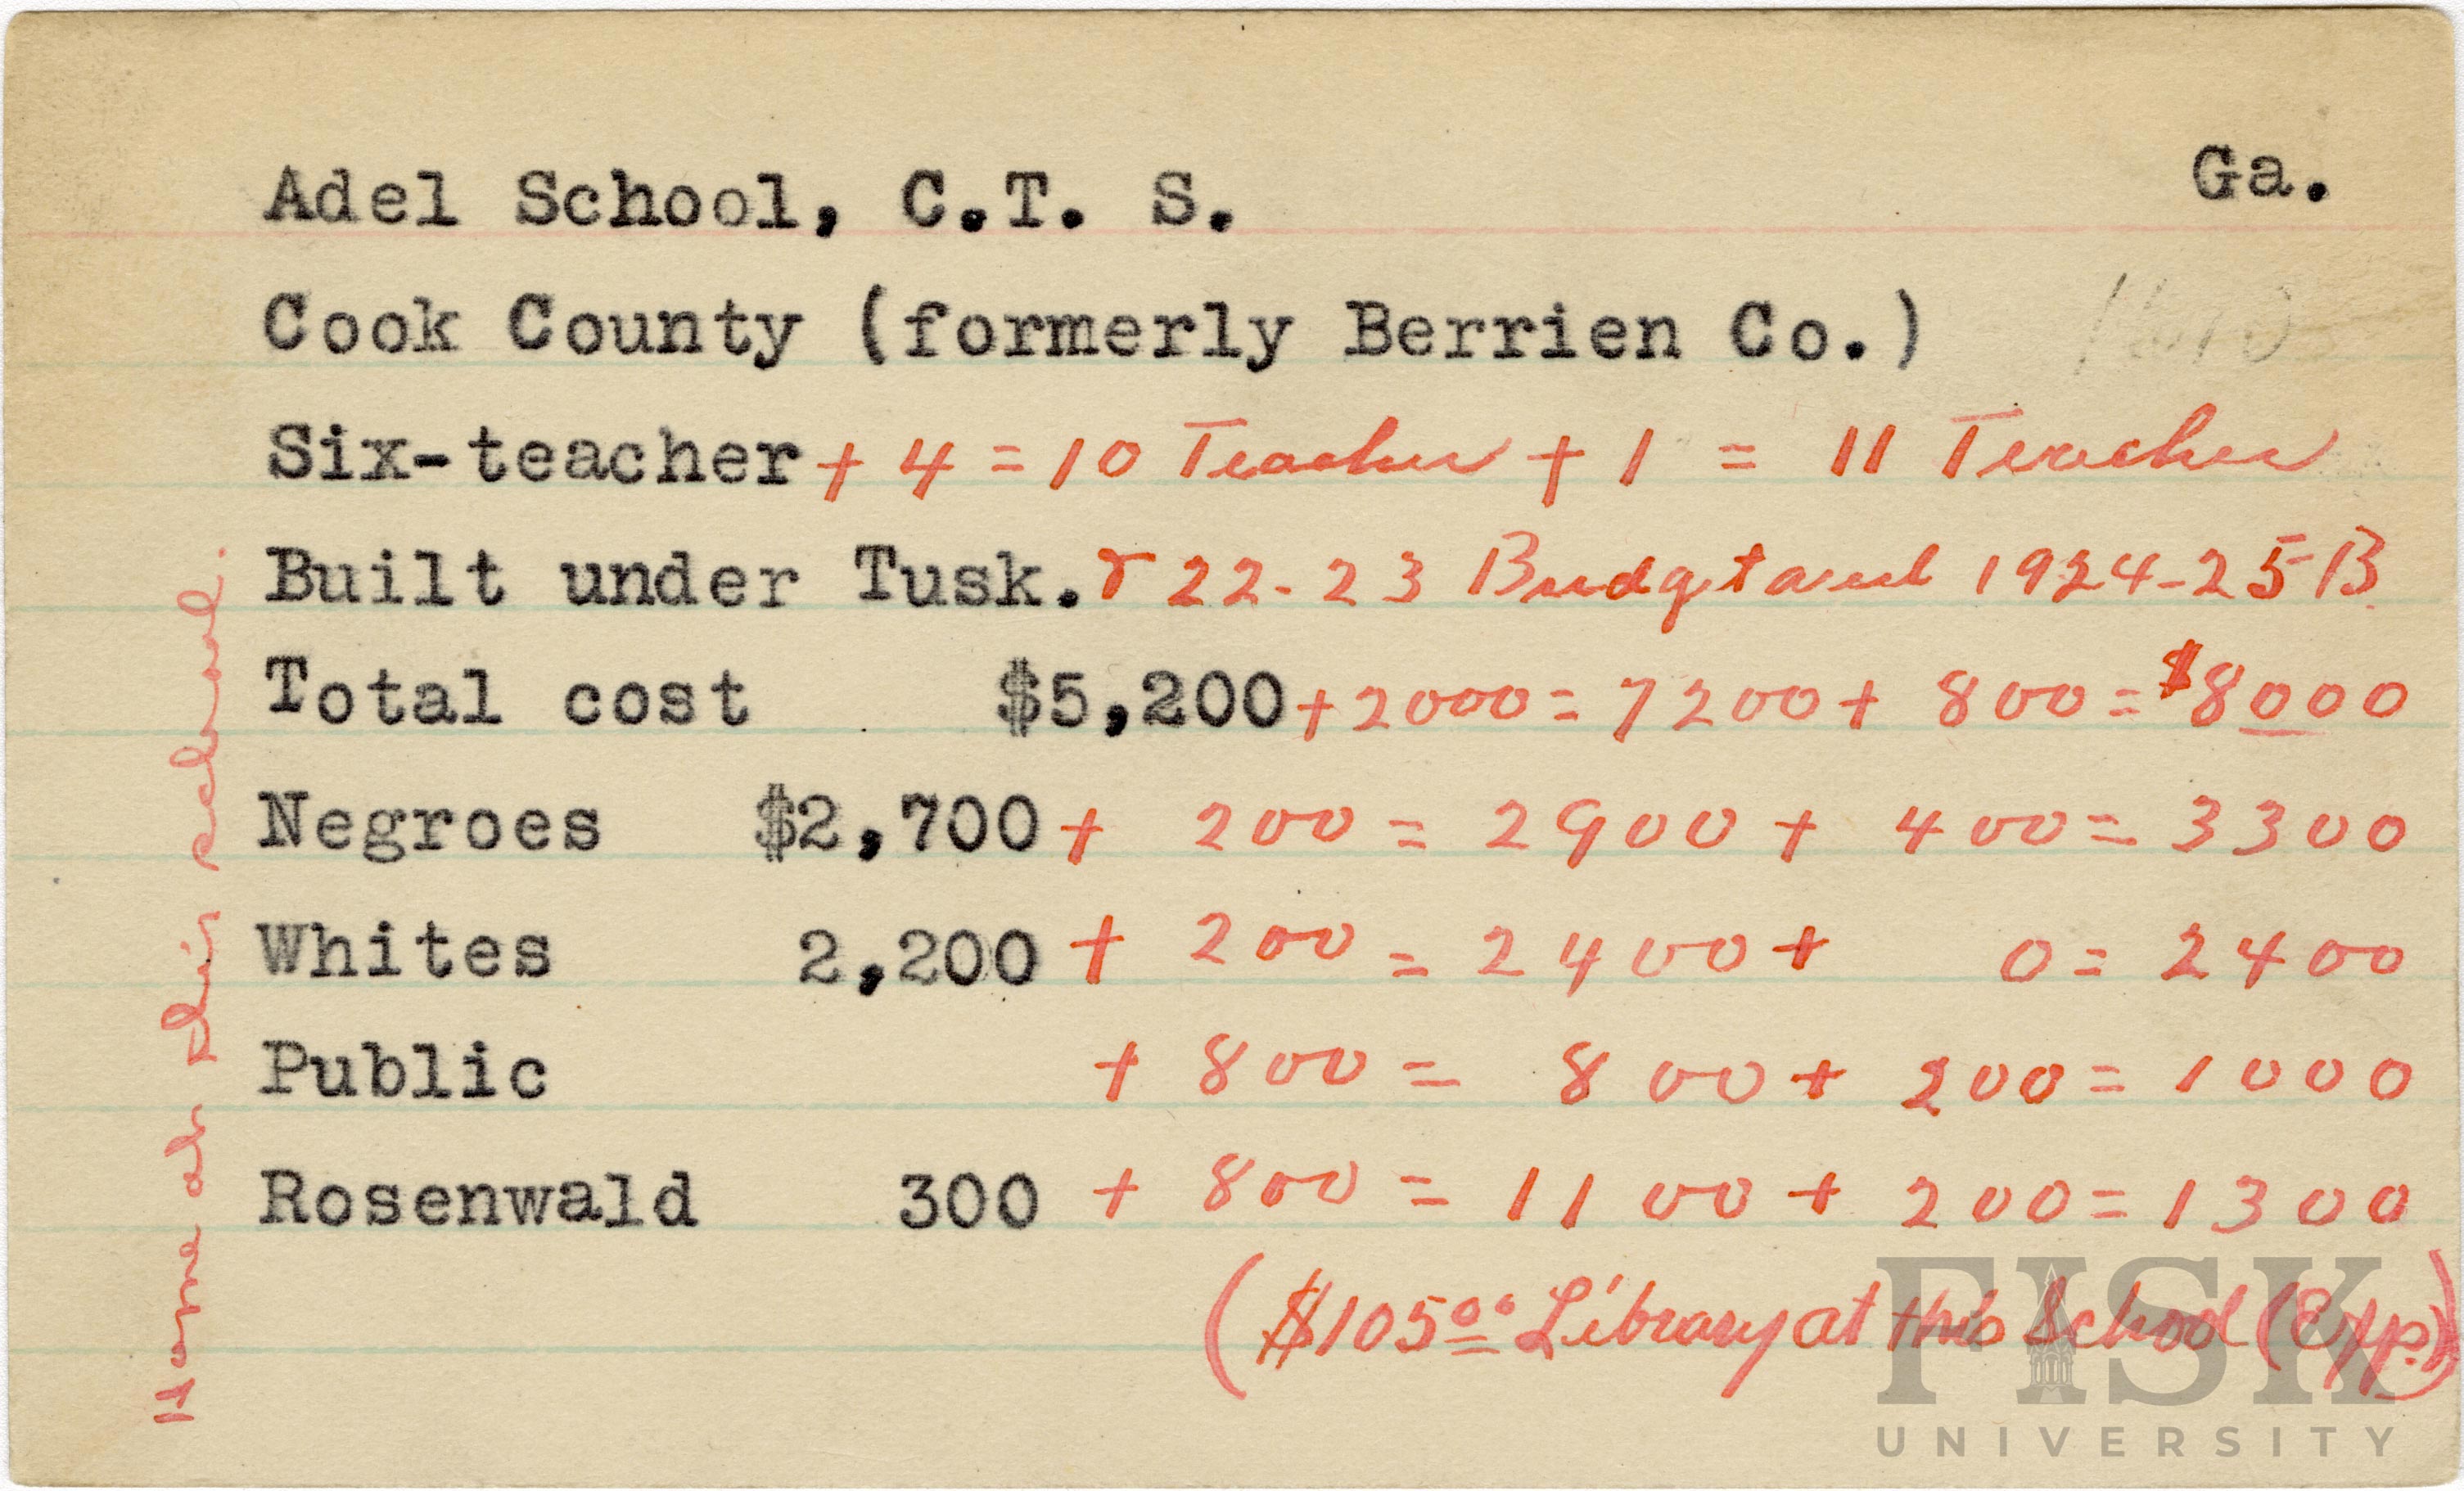 Adel School, C.T. S. Ga.
Cook County (formerly Berrien Co.)
Six-teacher + 4 = 10 Teacher + 1 = 11 Teacher
Built under Tusk. & 22-23 Budgt and 1924-25 B
Total cost $5,200 + 2000 = 7200 + 800 = $8000
Negroes $2,700 + 200 = 2900 + 400 = 3300
Whites 2,200 + 200 = 2400 + 0 = 2400
Public + 800 = 800 + 200 = 1000
Rosenwald 300 + 800 = 1100 + 200 = 1300
($105.00 Library at this School (Exp.))
Home at this school.
FISK
UNIVERSITY